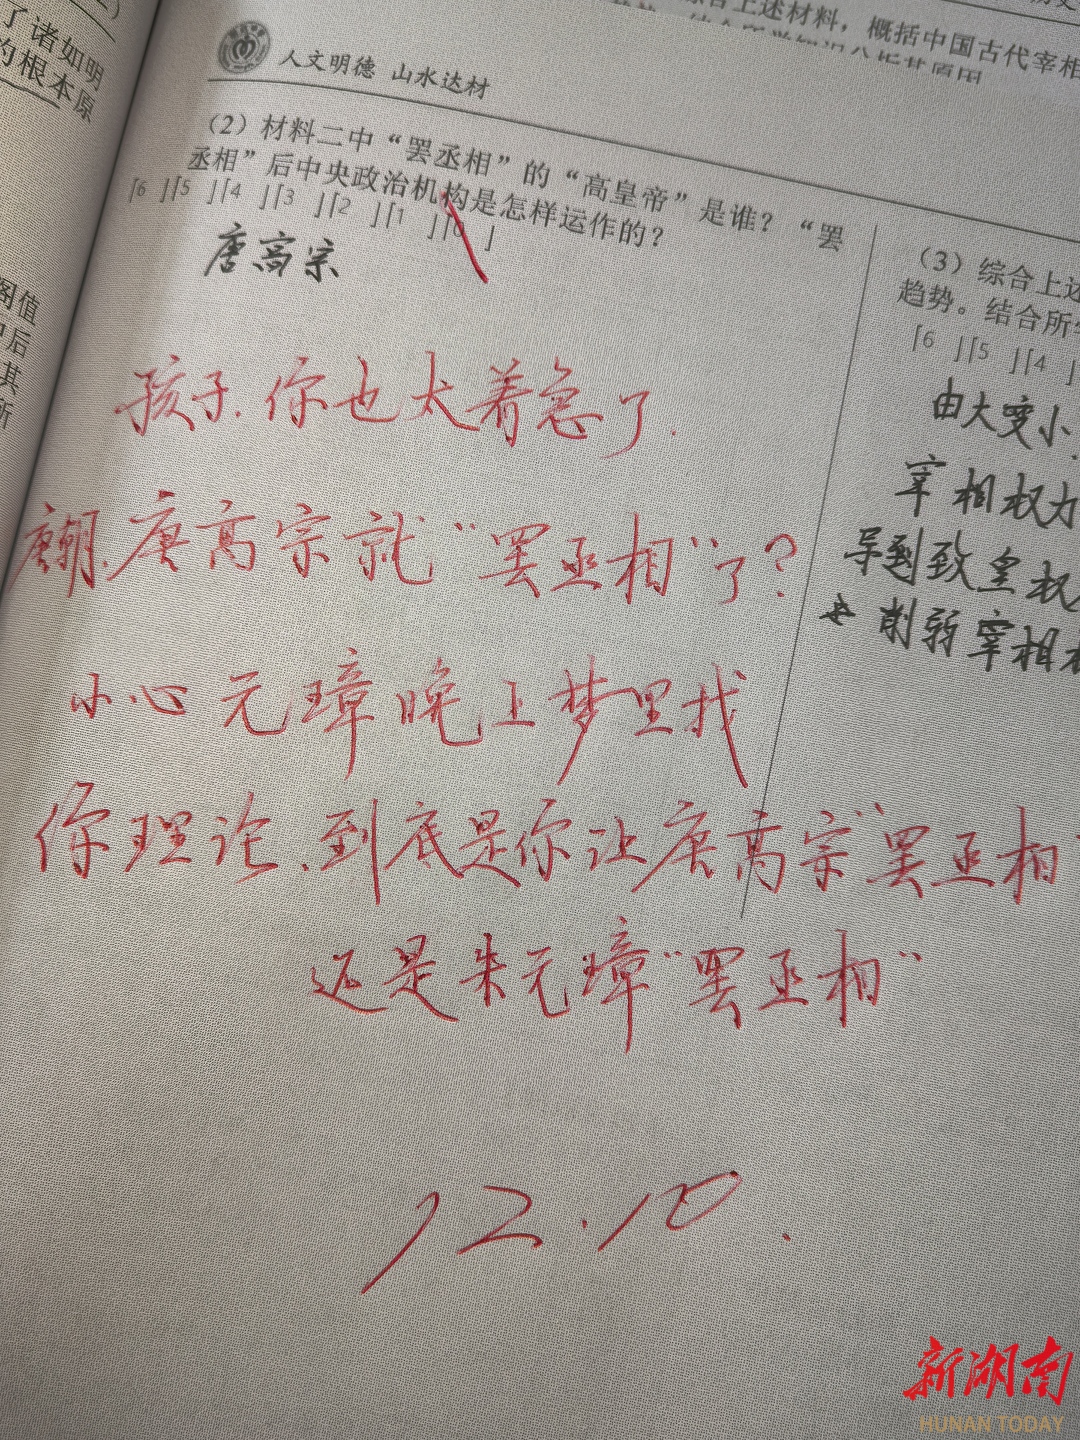 了诸如明
的根本原
综合上述材料，概括中国古代宰相
人文明德 山水达材
（2）材料二中“罢丞相”的“高皇帝”是谁？“罢
丞相”后中央政治机构是怎样运作的？
⌈6 ⌋⌈5 ⌋⌈4 ⌋⌈3 ⌋⌈2 ⌋⌈1 ⌋⌈0 ⌋
唐高宗
孩子.你也太着急了.
唐朝.唐高宗就“罢丞相”了？
小心元璋晚上梦里找
你理论.到底是你让唐高宗“罢丞相”
还是朱元璋“罢丞相”
12.10.
（3）综合上述
趋势。结合所学
⌈6 ⌋⌈5 ⌋⌈4 ⌋
由大变小.
宰相权力
导致皇权
削弱宰相
图值
中后
其
所
新湖南
HUNAN TODAY